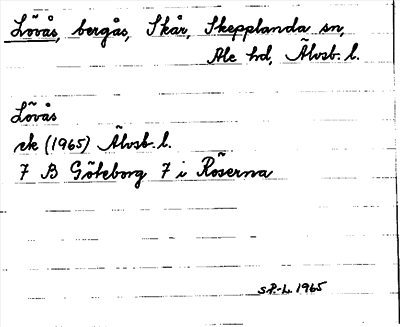 Lövås, bergås, Skår, Skepplanda sn,
Ale hd, Älvsb. l.
Lövås
ek (1965) Älvsb. l.
7 B Göteborg 7 i Röserna
S.P.-L. 1965